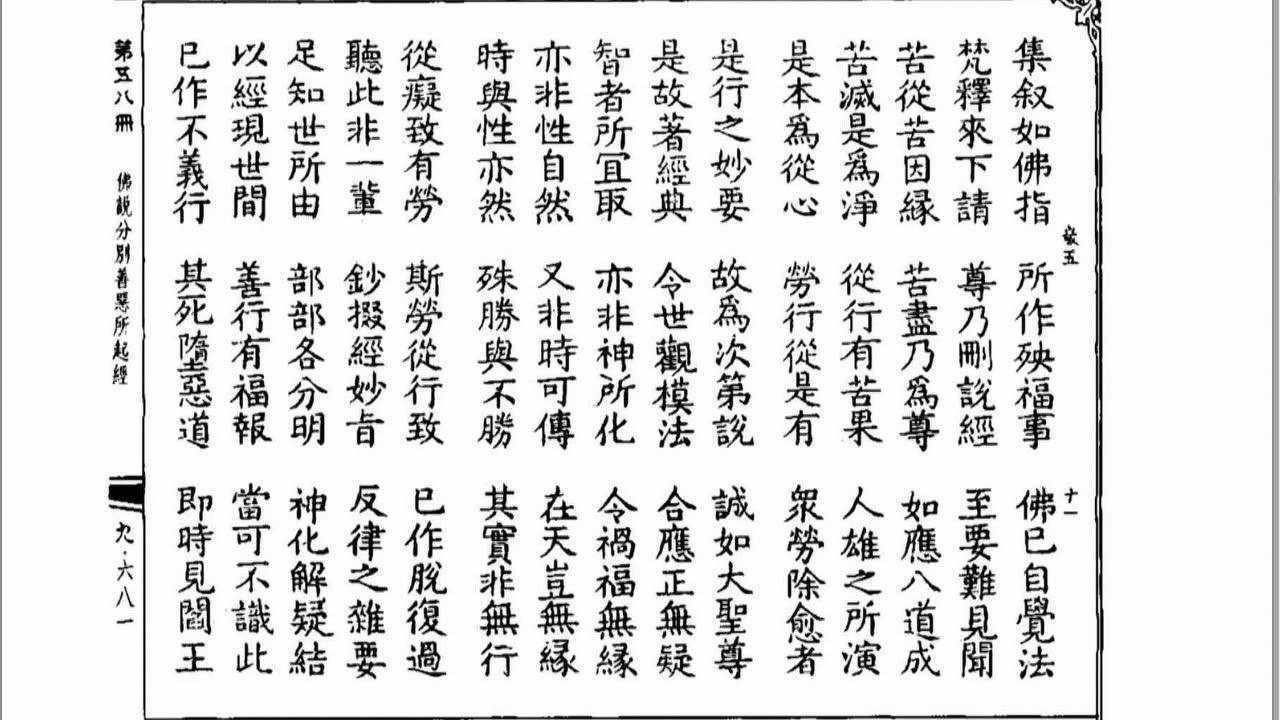 癸五
十一
集叙如佛指 所作殃福事 佛已自覺法
梵釋來下請 尊乃刪說經 至要難見聞
苦從苦因緣 苦盡乃爲尊 如應八道成
苦滅是爲淨 從行有苦果 人雄之所演
是本爲從心 勞行從是有 衆勞除愈者
是行之妙要 故爲次第說 誠如大聖尊
是故著經典 令世觀模法 合應正無疑
智者所宜取 亦非神所化 令禍福無緣
亦非性自然 又非時可傳 在天豈無緣
時與性亦然 殊勝與不勝 其實非無行
從癡致有勞 斯勞從行致 已作脫復過
聽此非一輩 鈔掇經妙旨 反律之雜要
足知世所由 部部各分明 神化解疑結
以經現世間 善行有福報 當可不識此
已作不義行 其死墮惡道 即時見閻王
第五八冊 佛説分別善惡所起經 九·六八一